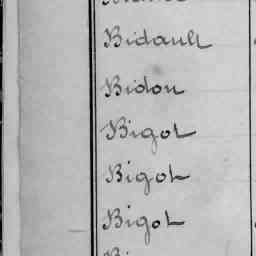 Bidault
Bidon
Bigot
Bigot
Bigot